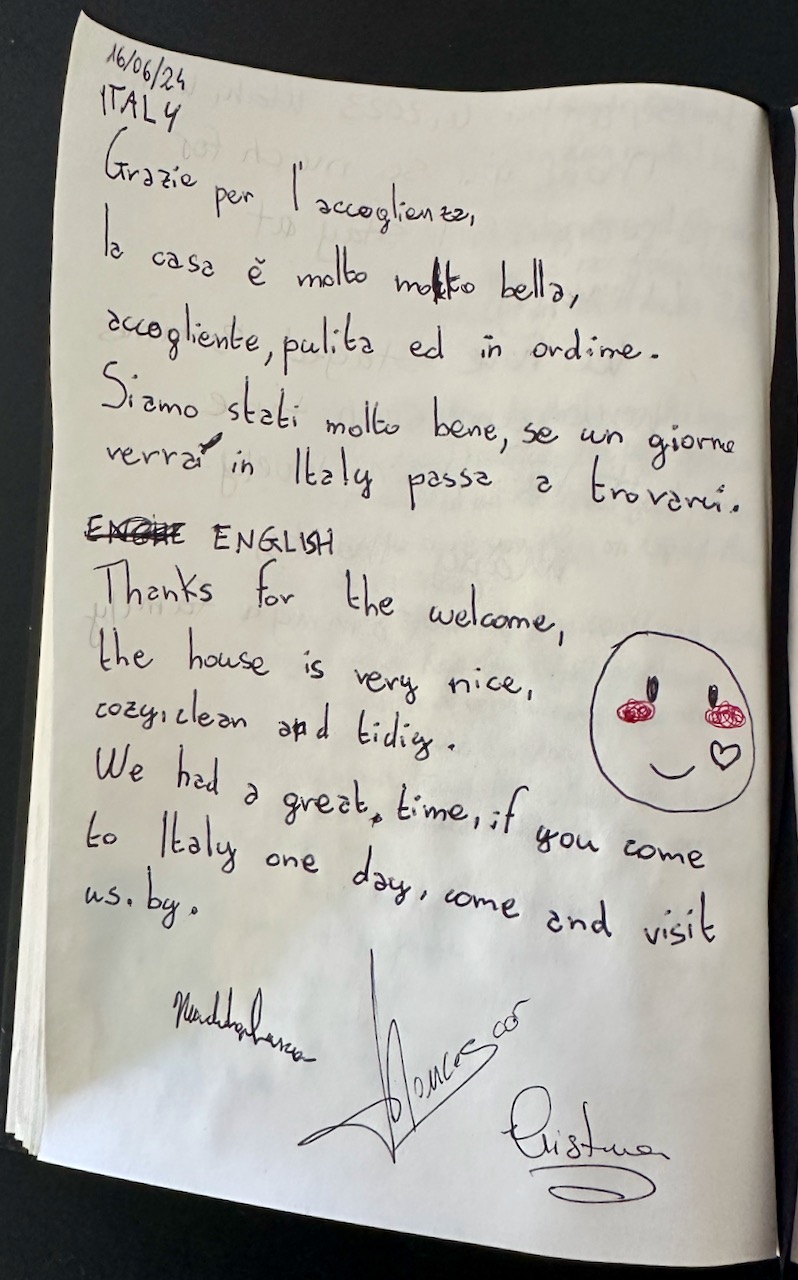 16/06/24
ITALY
Grazie per l'accoglienza,
la casa è molto molto bella,
accogliente, pulita ed in ordine.
Siamo stati molto bene, se un giorno
verrai in Italy passa a trovarci.
ENGLISH
Thanks for the welcome,
the house is very nice,
cozy, clean and tidiy.
We had a great, time, if you come
to Italy one day, come and visit
us. by.
Francesco
Cristina